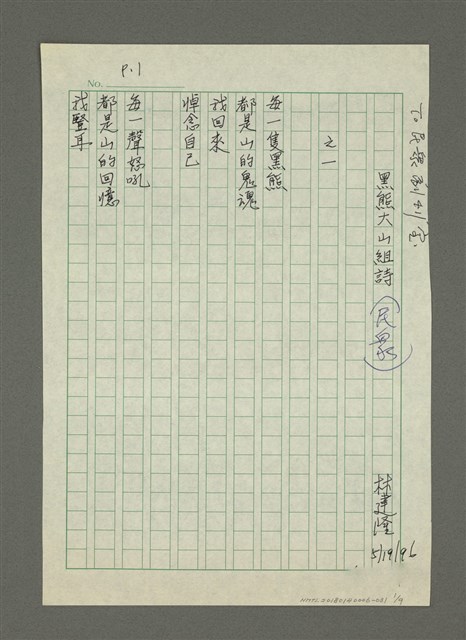 No. P.1
To 民眾副刊
黑熊大山組詩 (民眾)
林建隆
5/19/96
之一
每一隻黑熊
都是山的鬼魂
我回來
悼念自己
每一聲怒吼
都是山的回憶
我豎耳
1/9